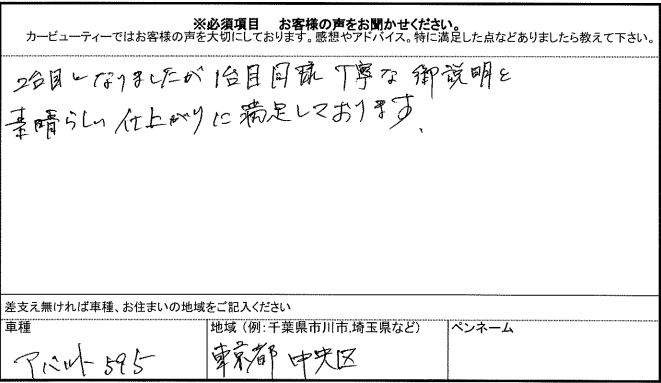 ※必須項目 お客様の声をお聞かせください。
カービューティーではお客様の声を大切にしております。感想やアドバイス。特に満足した点などありましたら教えて下さい。
2台目となりましたが1台目同様丁寧な御説明と
素晴らしい仕上がりに満足しております。
差支え無ければ車種、お住まいの地域をご記入ください
車種 地域（例：千葉県市川市,埼玉県など） ペンネーム
アバルト595 東京都 中央区